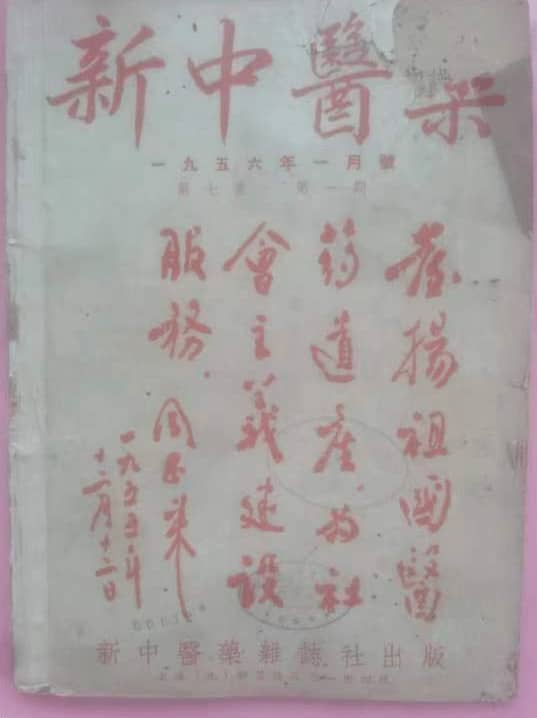 新中醫藥
一九五六年一月號
第七卷 第一期
發揚祖國醫
药遺產為社
會主義建設
服務
周恩来
一九五五年
十二月十二日
新中醫藥雜誌社出版